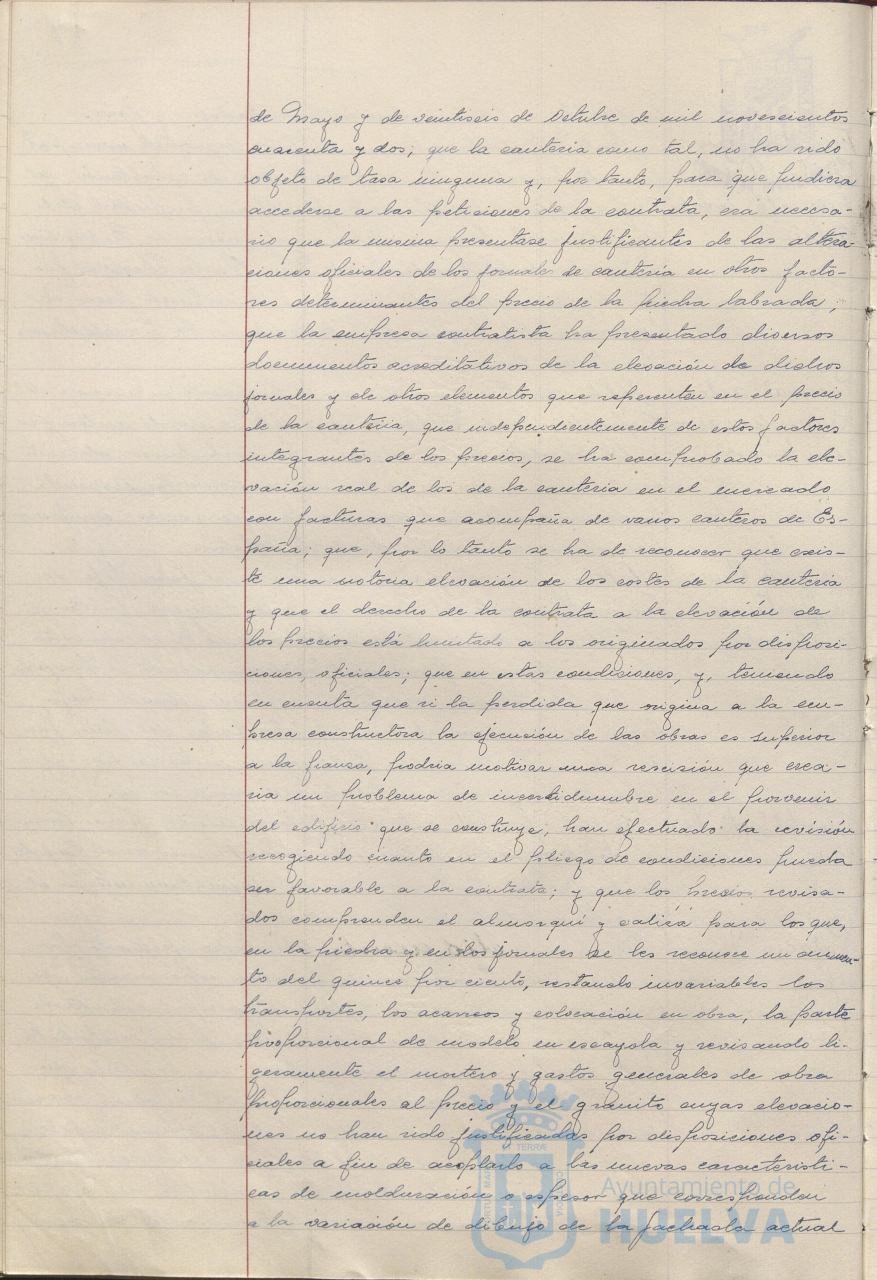 de Mayo y de veintiseis de Octubre de mil novescientos
cuarenta y dos; que la canteria como tal, no ha sido
objeto de tasa ninguna y, por tanto, para que pudiera
accederse a las peticiones de la contrata, era necesa-
rio que la misma presentase justificantes de las altera-
ciones oficiales de los jornales de canteria en otros facto-
res determinantes del precio de la piedra labrada;
que la empresa contratista ha presentado diversos
documentos acreditativos de la elevación de dichos
jornales y de otros elementos que repercuten en el precio
de la canteria, que independientemente de estos factores
integrantes de los precios, se ha comprobado la ele-
vación real de los de la canteria en el mercado
con facturas que acompaña de varios canteros de Es-
paña; que, por lo tanto se ha de reconocer que exis-
te una notoria elevación de los costes de la canteria
y que el derecho de la contrata a la elevación de
los precios está limitado a los originados por disposi-
ciones, oficiales; que en estas condiciones, y, teniendo
en cuenta que si la perdida que origina a la em-
presa constructora la ejecución de las obras es superior
a la fianza, podria motivar una rescisión que crea-
ria un problema de incertidumbre en el porvenir
del edificio que se construye, han efectuado la revisión
recogiendo cuanto en el pliego de condiciones pueda
ser favorable a la contrata; y que los precios revisa-
dos comprenden el almorquí y caliza para los que,
en la piedra y en los jornales se les reconoce un aumen-
to del quince por ciento, restando invariables los
transportes, los acarreos y colocación en obra, la parte
proporcional de modelo en escayola y revisando li-
geramente el mortero y gastos generales de obra
proporcionales al precio y el granito cuyas elevacio-
nes no han sido justificadas por disposiciones ofi-
ciales a fin de acoplarlo a las nuevas caracteristi-
cas de molduración o espesor que corresponden
a la variación de dibujo de la fachada actual
TERRÆ
Ayuntamiento de
HUELVA